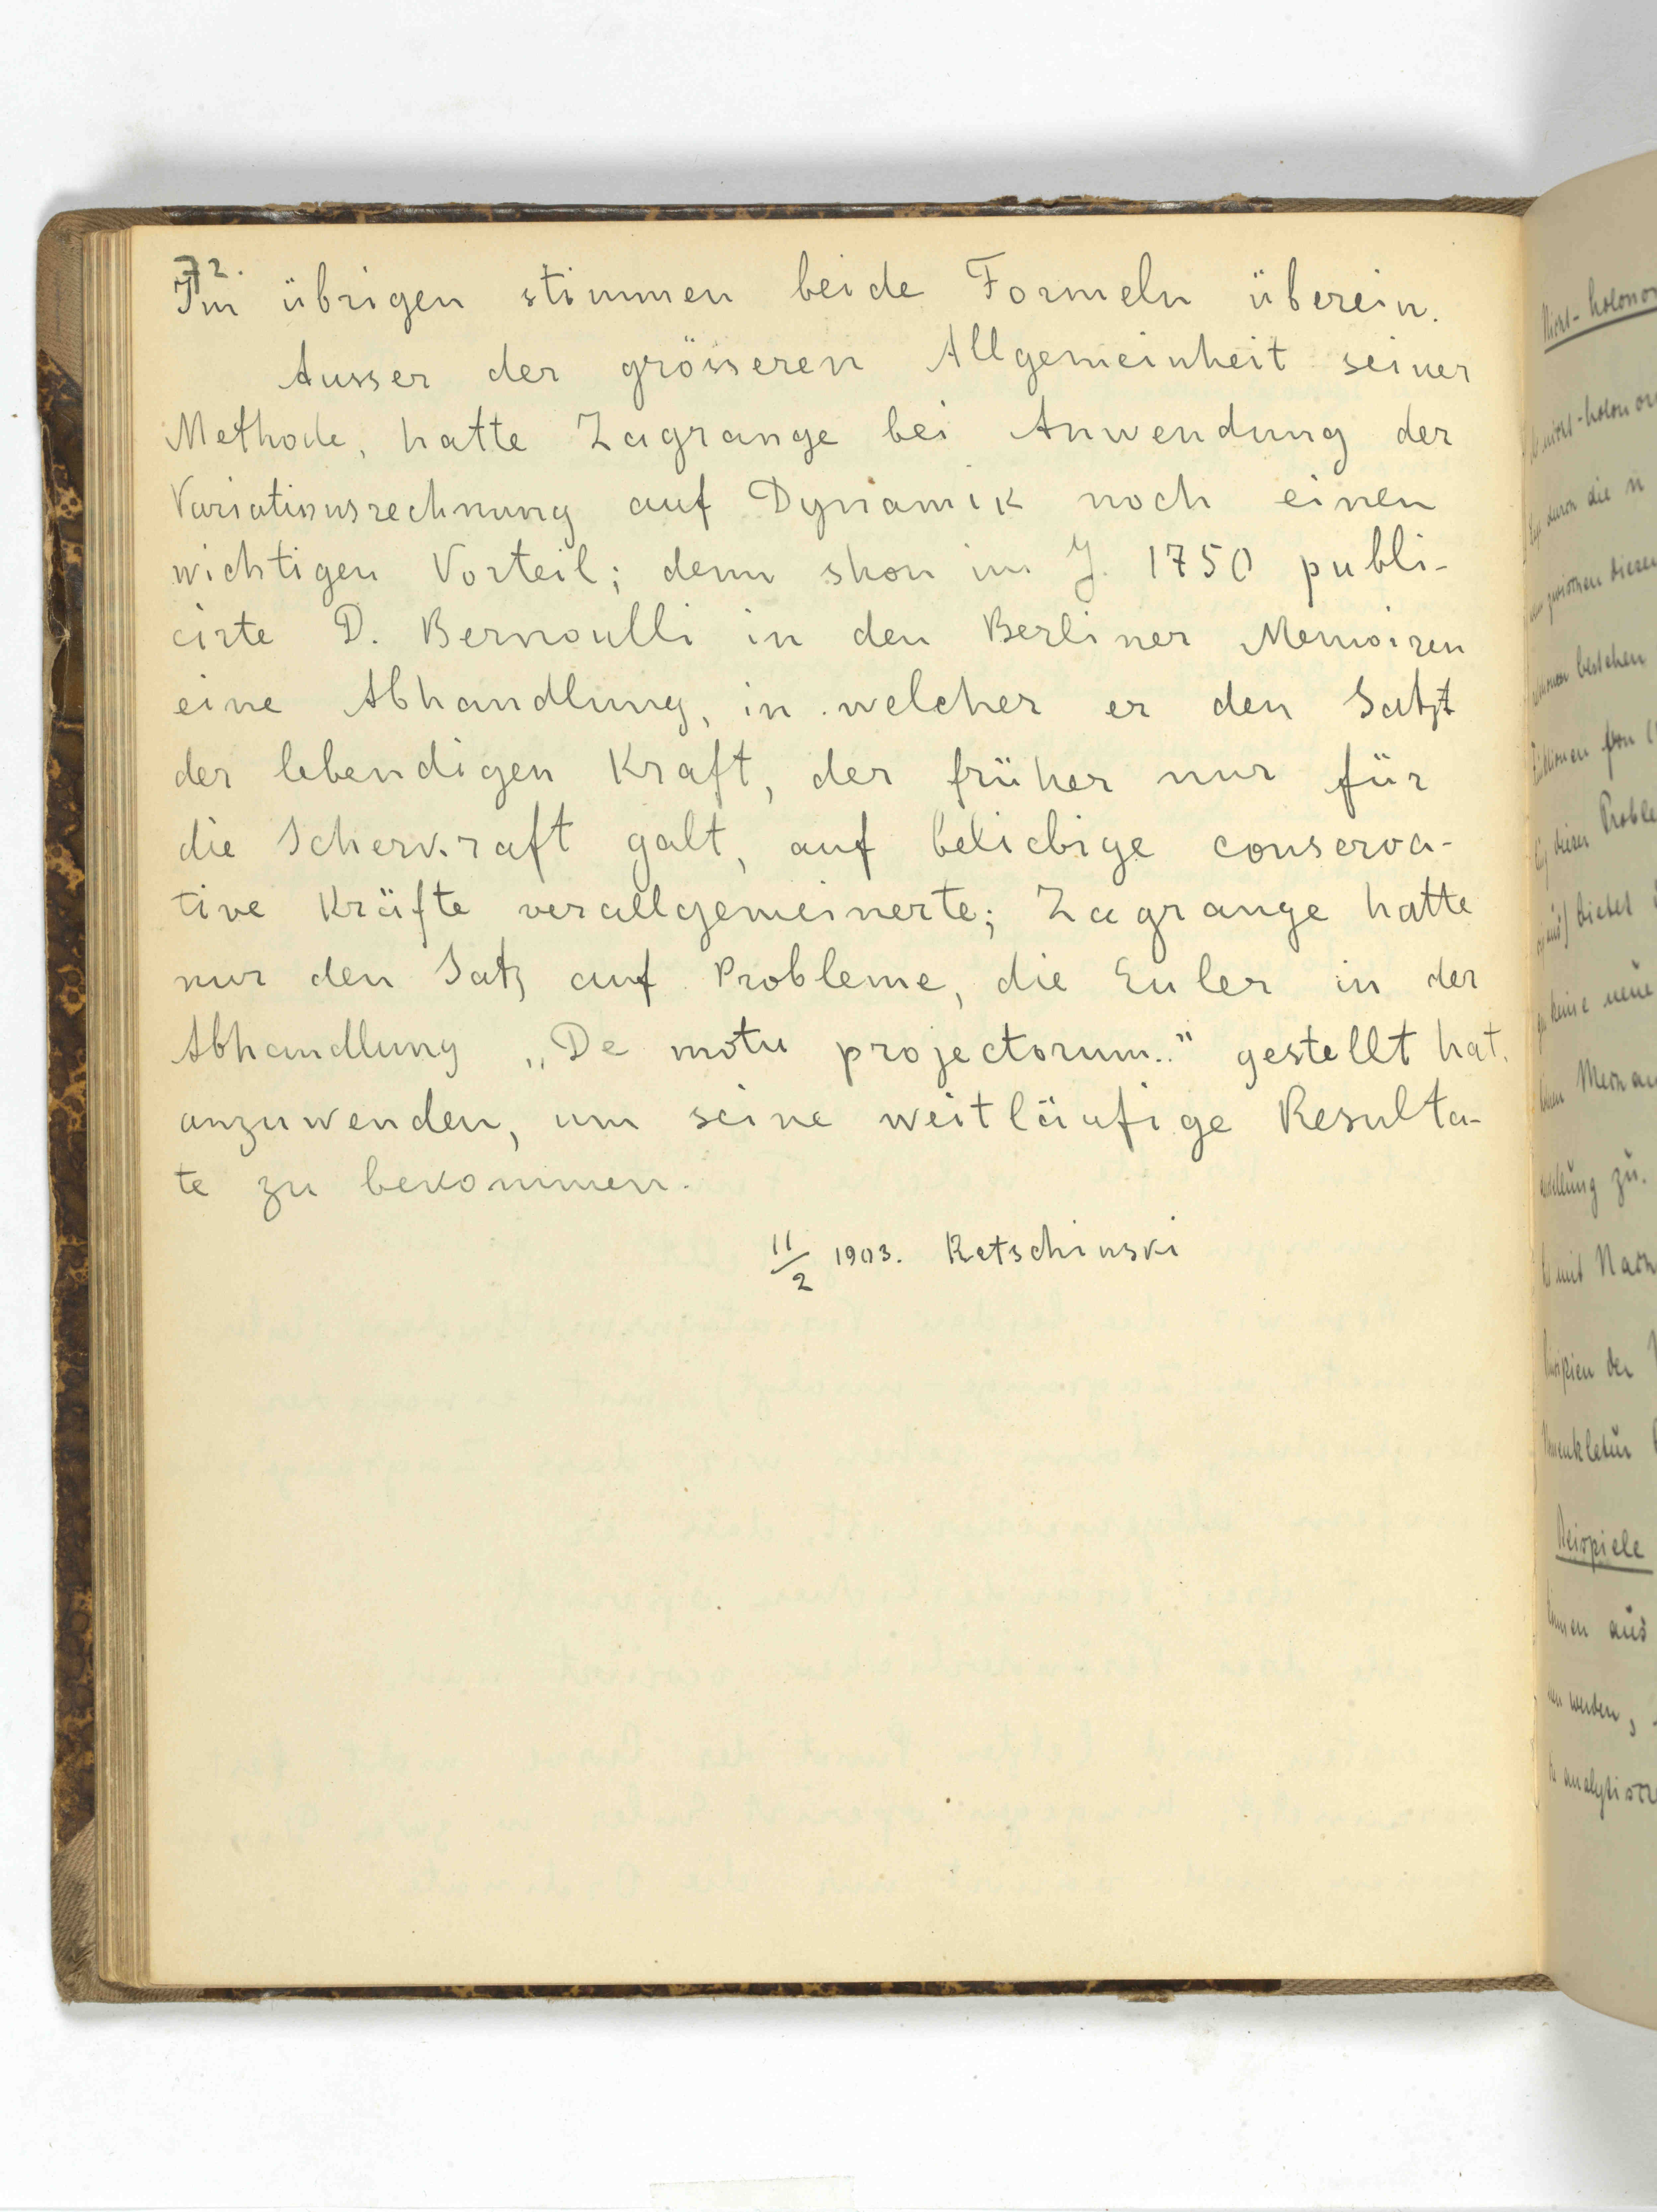 72.
Im übrigen stimmen beide Formeln überein.
Ausser der grösseren Allgemeinheit seiner
Methode, hatte Lagrange bei Anwendung der
Variationsrechnung auf Dynamik noch einen
wichtigen Vorteil; denn shon im J. 1750 publi-
cirte D. Bernoulli in den Berliner Memoiren
eine Abhandlung, in welcher er den Satz
der lebendigen Kraft, der früher nur für
die Scherkraft galt, auf beliebige conserva-
tive Kräfte verallgemeinerte; Lagrange hatte
nur den Satz auf Probleme, die Euler in der
Abhandlung „De motu projectorum.." gestellt hat,
anzuwenden, um seine weitläufige Resulta-
te zu bekommen.
11/2 1903. Retschinski
Nicht-holonom
nicht-holonom
durch die n
zwischen diesen
bestehen
von
dieser Proble
dieses
keine neue
zu.
mit
der
Beispiele
aus
werden,